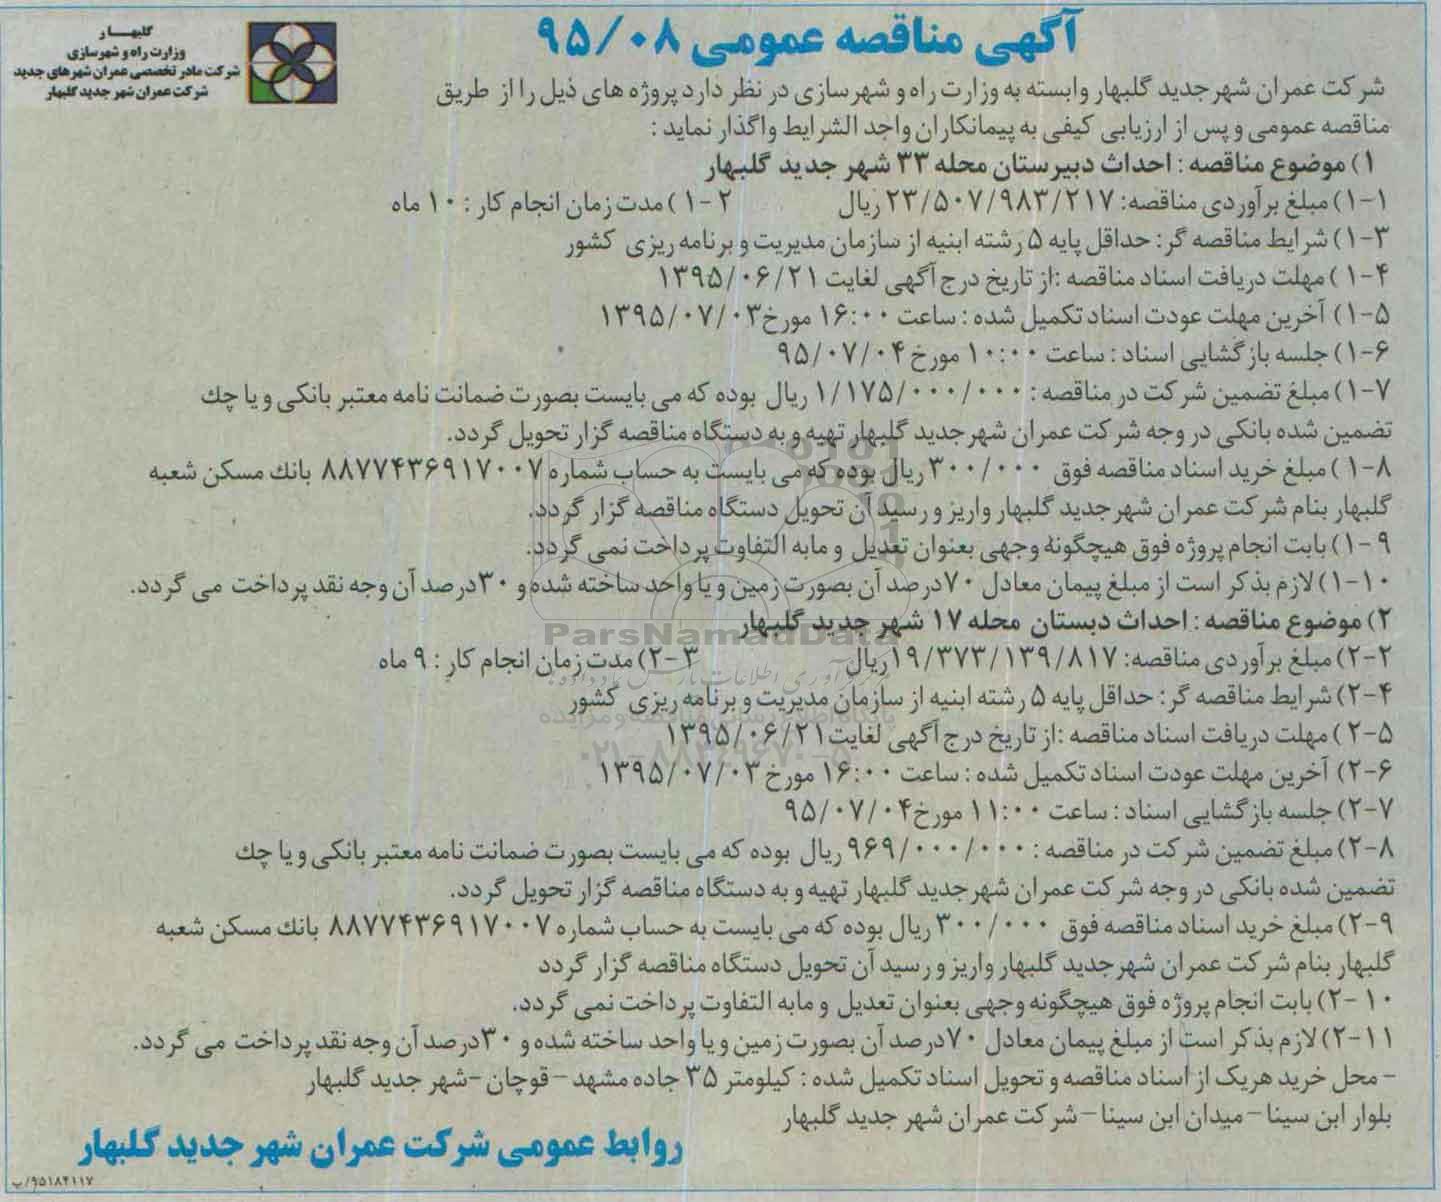 آگهی مناقصه عمومی ۹۵/۰۸
گلبهار
وزارت راه و شهرسازی
شرکت مادر تخصصی عمران شهرهای جدید
شرکت عمران شهر جدید گلبهار
شرکت عمران شهر جدید گلبهار وابسته به وزارت راه و شهرسازی در نظر دارد پروژه های ذیل را از طریق
مناقصه عمومی و پس از ارزیابی کیفی به پیمانکاران واجد الشرایط واگذار نماید :
۱) موضوع مناقصه : احداث دبیرستان محله ۳۳ شهر جدید گلبهار
۱-۱) مبلغ برآوردی مناقصه: ۲۳/۵۰۷/۹۸۳/۲۱۷ ریال ۱-۲) مدت زمان انجام کار : ۱۰ ماه
۱-۳) شرایط مناقصه گر: حداقل پایه ۵ رشته ابنیه از سازمان مدیریت و برنامه ریزی کشور
۱-۴) مهلت دریافت اسناد مناقصه :از تاریخ درج آگهی لغایت ۱۳۹۵/۰۶/۲۱
۱-۵) آخرین مهلت عودت اسناد تکمیل شده : ساعت ۱۶:۰۰ مورخ ۱۳۹۵/۰۷/۰۳
۱-۶) جلسه بازگشایی اسناد : ساعت ۱۰:۰۰ مورخ ۹۵/۰۷/۰۴
۱-۷) مبلغ تضمین شرکت در مناقصه : ۱/۱۷۵/۰۰۰/۰۰۰ ریال بوده که می بایست بصورت ضمانت نامه معتبر بانکی و یا چك
تضمین شده بانکی در وجه شرکت عمران شهر جدید گلبهار تهیه و به دستگاه مناقصه گزار تحویل گردد.
۱-۸) مبلغ خرید اسناد مناقصه فوق ۳۰۰/۰۰۰ ریال بوده که می بایست به حساب شماره ۸۸۷۷۴۳۶۹۱۷۰۰۷ بانك مسکن شعبه
گلبهار بنام شرکت عمران شهر جدید گلبهار واریز و رسید آن تحویل دستگاه مناقصه گزار گردد.
۱-۹) بابت انجام پروژه فوق هیچگونه وجهی بعنوان تعدیل و مابه التفاوت پرداخت نمی گردد.
۱-۱۰) لازم بذکر است از مبلغ پیمان معادل ۷۰درصد آن بصورت زمین و یا واحد ساخته شده و ۳۰درصد آن وجه نقد پرداخت می گردد.
۲) موضوع مناقصه : احداث دبستان محله ۱۷ شهر جدید گلبهار
ParsNamadData
۲-۲) مبلغ برآوردی مناقصه: ۱۹/۳۷۳/۱۳۹/۸۱۷ریال ۲-۳) مدت زمان انجام کار : ۹ ماه
۲-۴) شرایط مناقصه گر: حداقل پایه ۵ رشته ابنیه از سازمان مدیریت و برنامه ریزی کشور
۲-۵) مهلت دریافت اسناد مناقصه :از تاریخ درج آگهی لغایت۱۳۹۵/۰۶/۲۱
۲-۶) آخرین مهلت عودت اسناد تکمیل شده : ساعت ۱۶:۰۰ مورخ ۱۳۹۵/۰۷/۰۳
۲-۷) جلسه بازگشایی اسناد : ساعت ۱۱:۰۰ مورخ ۹۵/۰۷/۰۴
۲-۸) مبلغ تضمین شرکت در مناقصه : ۹۶۹/۰۰۰/۰۰۰ ریال بوده که می بایست بصورت ضمانت نامه معتبر بانکی و یا چك
تضمین شده بانکی در وجه شرکت عمران شهر جدید گلبهار تهیه و به دستگاه مناقصه گزار تحویل گردد.
۲-۹) مبلغ خرید اسناد مناقصه فوق ۳۰۰/۰۰۰ ریال بوده که می بایست به حساب شماره ۸۸۷۷۴۳۶۹۱۷۰۰۷ بانك مسکن شعبه
گلبهار بنام شرکت عمران شهر جدید گلبهار واریز و رسید آن تحویل دستگاه مناقصه گزار گردد
۲-۱۰) بابت انجام پروژه فوق هیچگونه وجهی بعنوان تعدیل و مابه التفاوت پرداخت نمی گردد.
۲-۱۱) لازم بذکر است از مبلغ پیمان معادل ۷۰درصد آن بصورت زمین و یا واحد ساخته شده و ۳۰درصد آن وجه نقد پرداخت می گردد.
- محل خرید هریک از اسناد مناقصه و تحویل اسناد تکمیل شده : کیلومتر ۳۵ جاده مشهد - قوچان -شهر جدید گلبهار
بلوار ابن سینا - میدان ابن سینا - شرکت عمران شهر جدید گلبهار
روابط عمومی شرکت عمران شهر جدید گلبهار
۹۵۱۸۴۱۱۷/پ